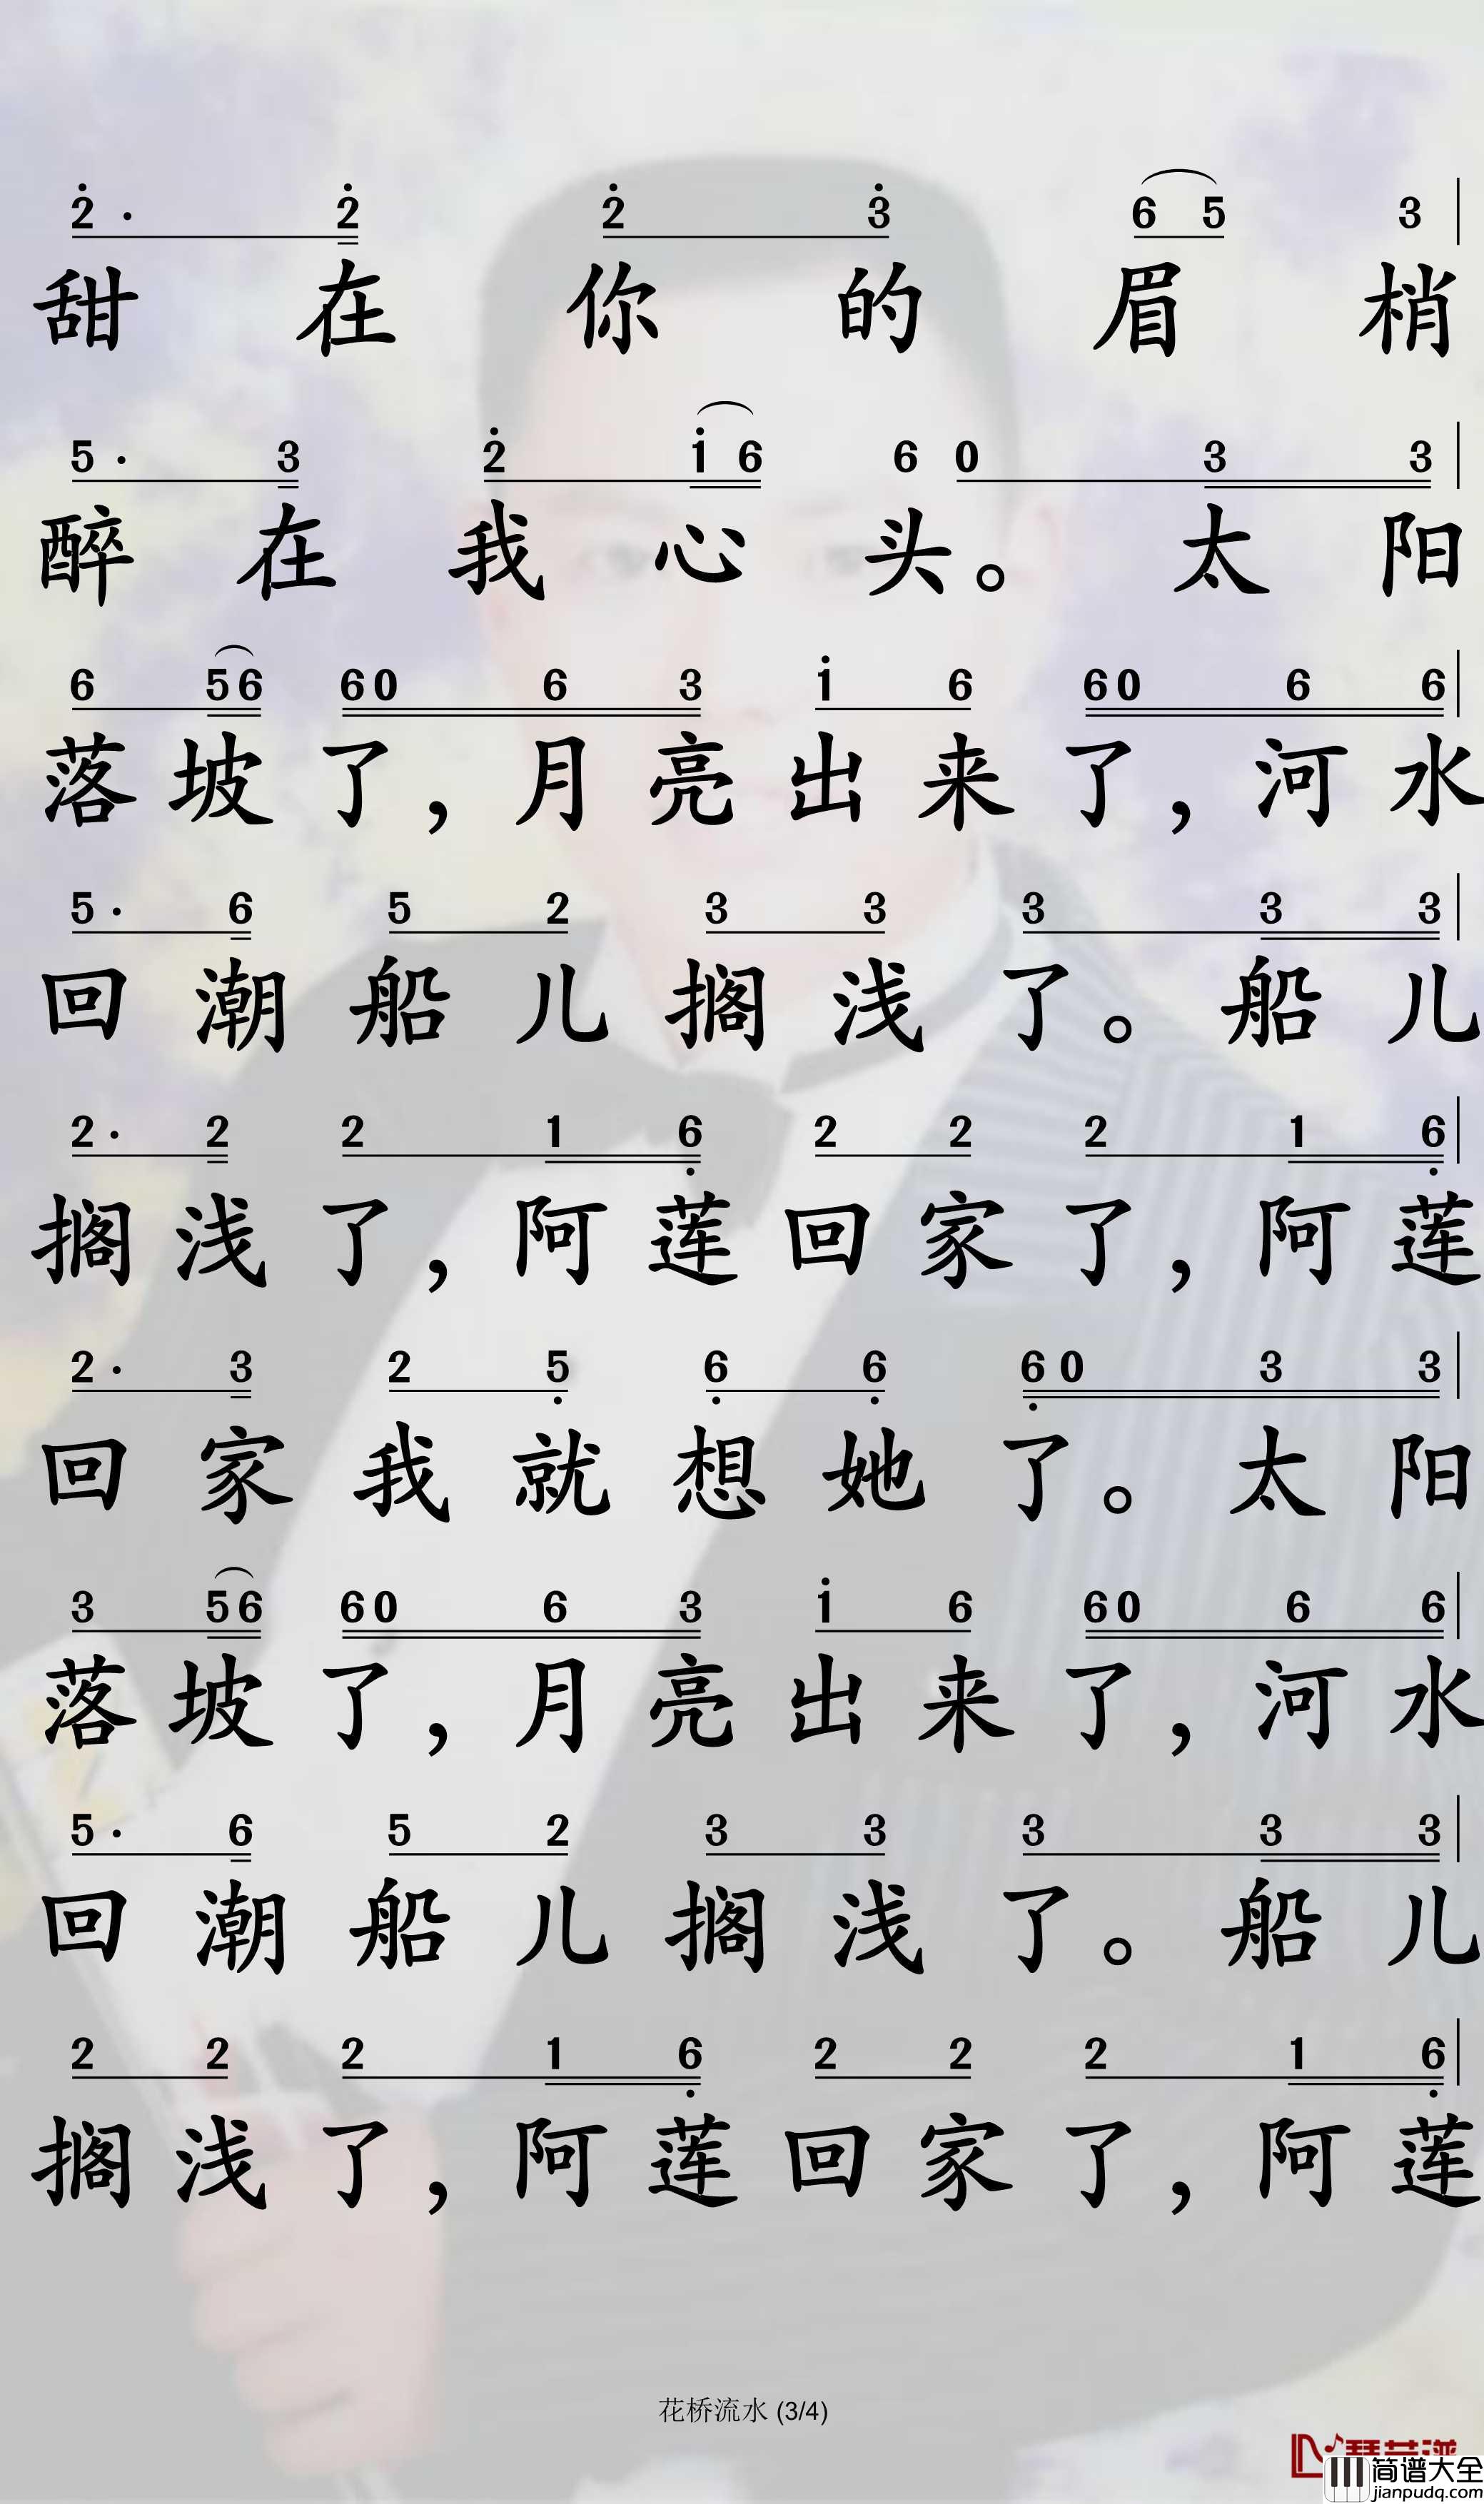 2̇· 2̇ 2̇ 3̇ 6 5 3
甜在你的眉梢
5· 3 2̇ 1̇ 6 6 0 3 3
醉在我心头。太阳
6 5 6 6 0 6 3 1̇ 6 6 0 6 6
落坡了,月亮出来了,河水
5· 6 5 2 3 3 3 3 3
回潮船儿搁浅了。船儿
2· 2 2 1 6̣ 2 2 2 1 6̣
搁浅了,阿莲回家了,阿莲
2· 3 2 5̣ 6̣ 6̣ 6̣ 0 3 3
回家我就想她了。太阳
3 5 6 6 0 6 3 1̇ 6 6 0 6 6
落坡了,月亮出来了,河水
5· 6 5 2 3 3 3 3 3
回潮船儿搁浅了。船儿
2 2 2 1 6̣ 2 2 2 1 6̣
搁浅了,阿莲回家了,阿莲
花桥流水 (3/4)
简谱大全
jianpudq.com